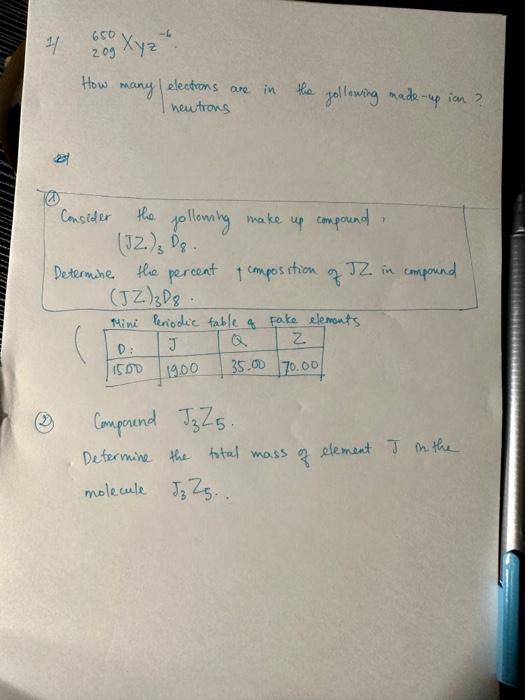 1/ 650 209 Xyz -6.
How many electrons are in the following made-up ion ?
neutrons
①
Consider the following make up compound,
(JZ)3 D8.
Determine the percent composition of JZ in compound
(JZ)3D8.
Mini Periodic table of fake elements
D: J Q Z
15.00 19.00 35.00 70.00
② Compound J3Z5.
Determine the total mass of element J in the
molecule J3Z5..